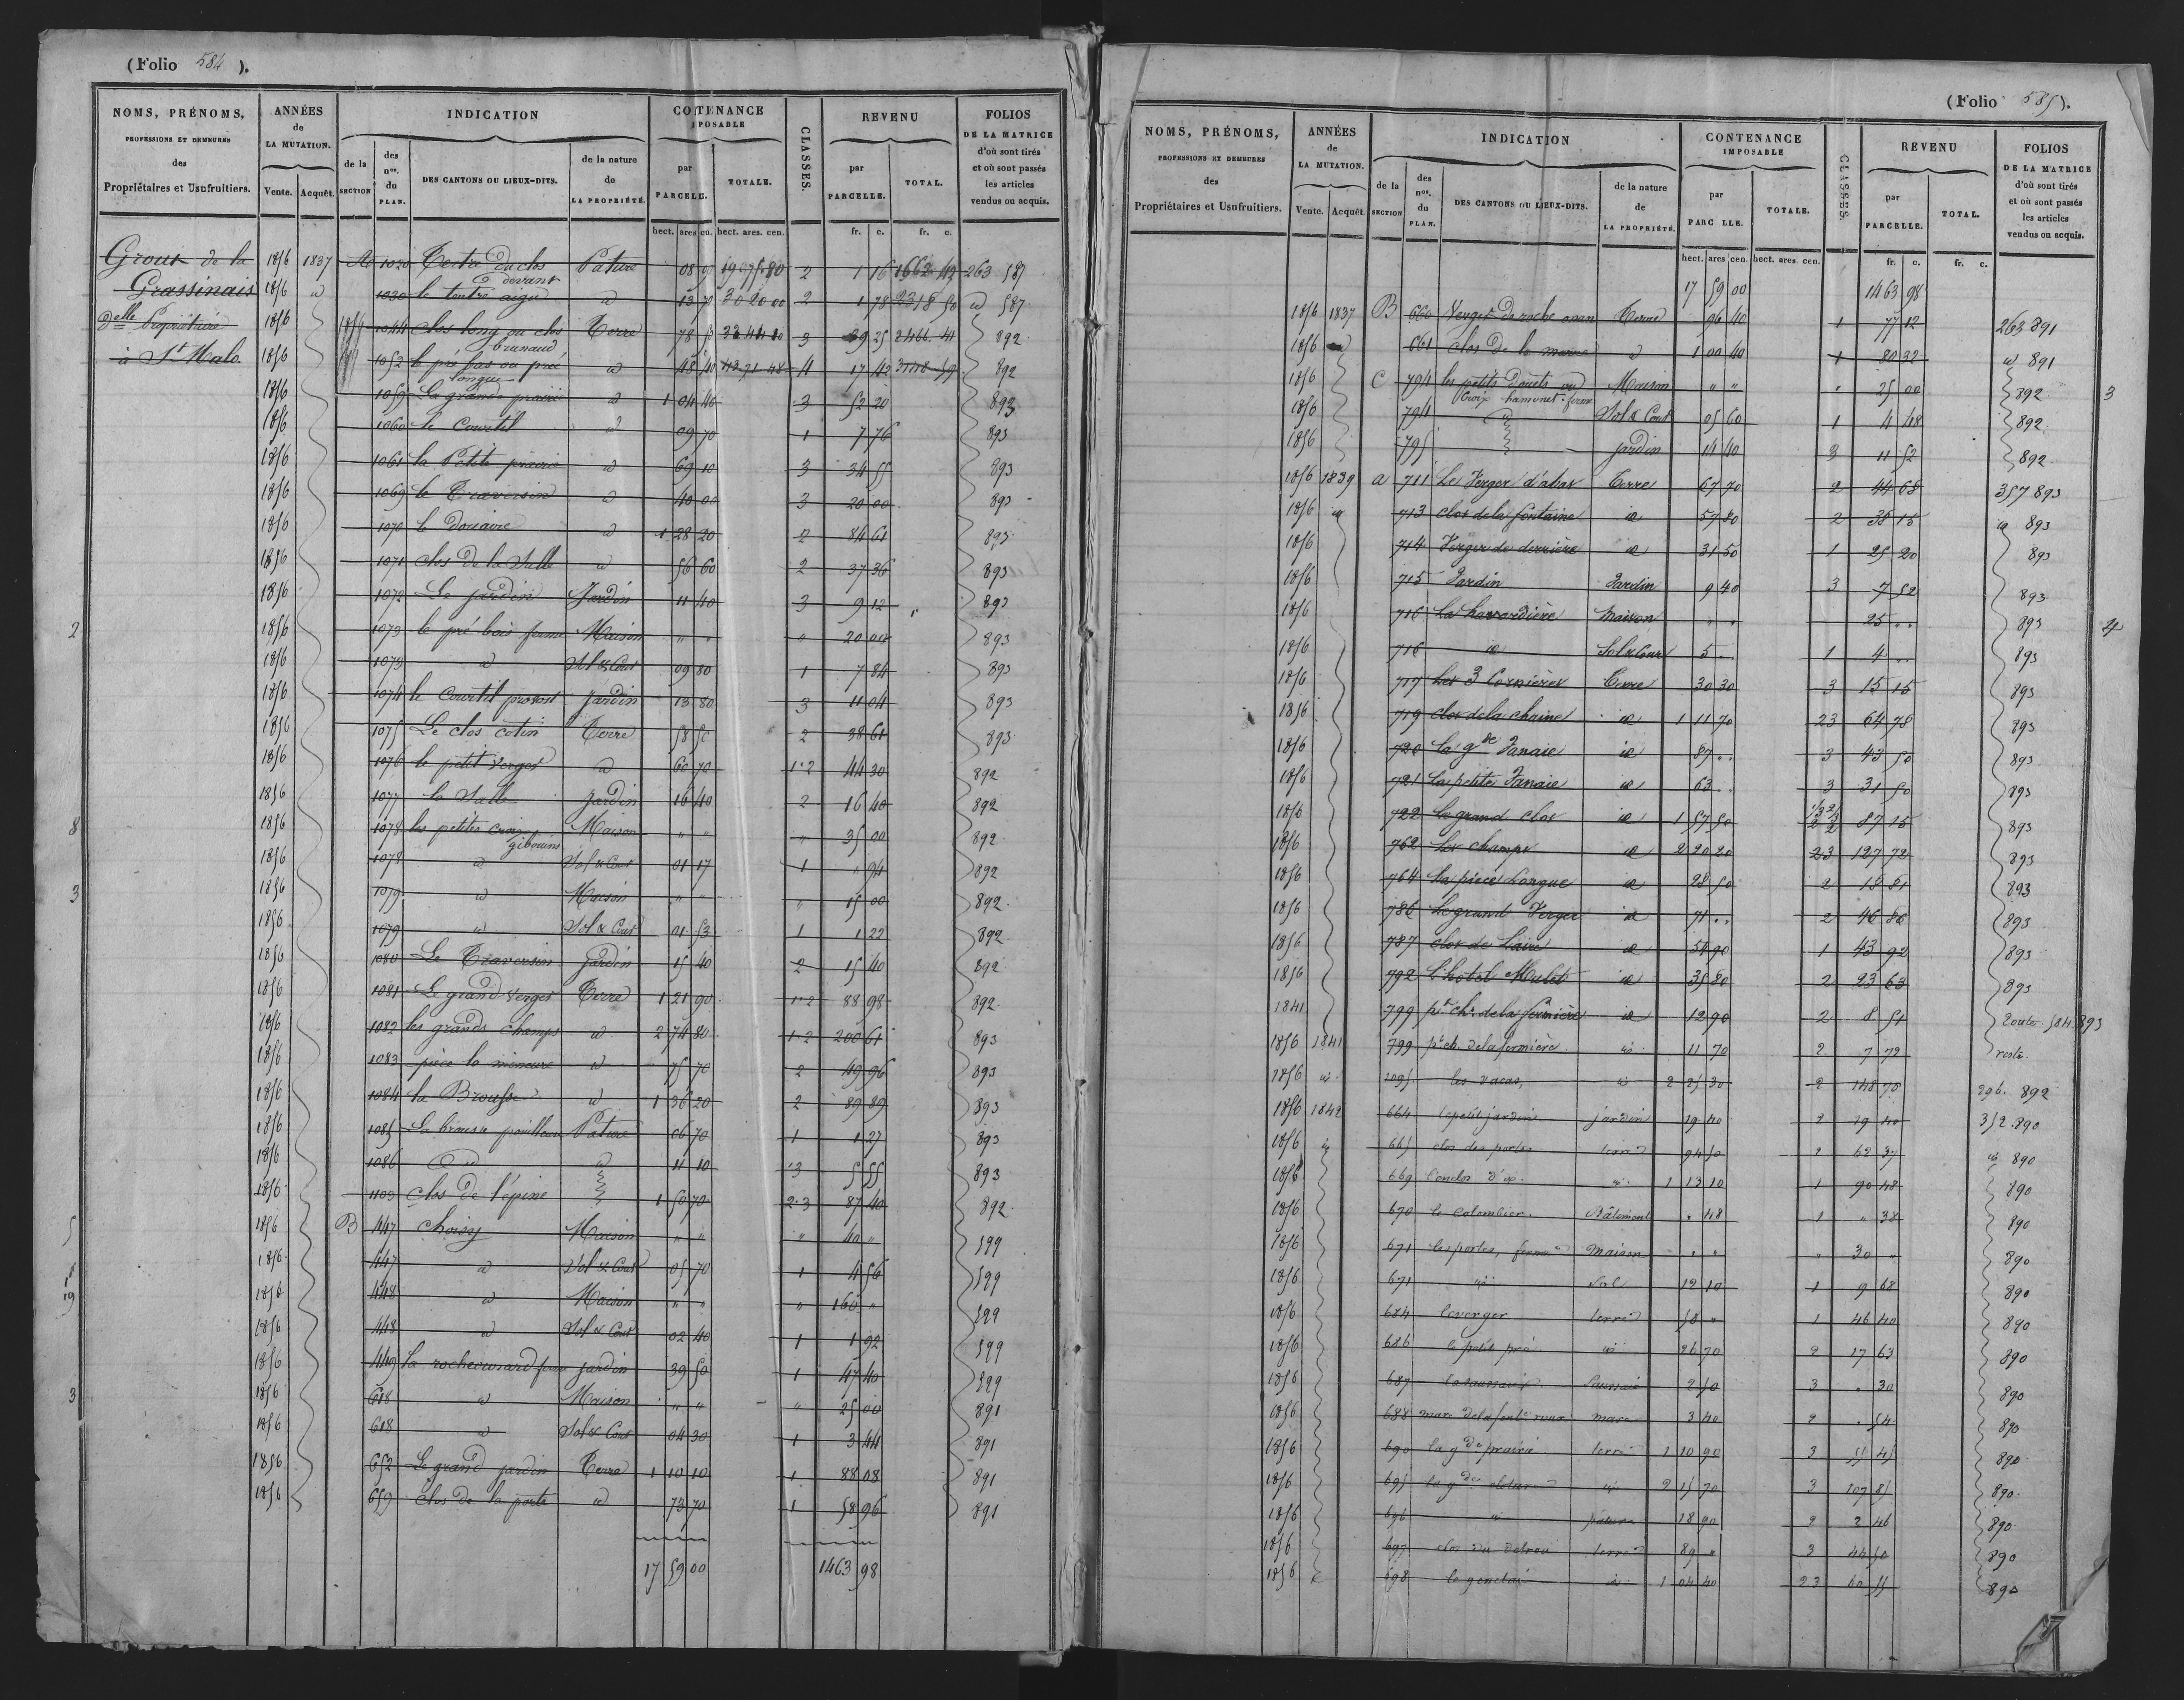 (Folio 584).
NOMS, PRÉNOMS, PROFESSIONS ET DEMEURES des Propriétaires et Usufruitiers.
ANNÉES de LA MUTATION. Vente. Acquêt.
INDICATION de la SECTION des nos. du PLAN. DES CANTONS OU LIEUX-DITS. de la nature de LA PROPRIÉTÉ.
CONTENANCE IMPOSABLE par PARCELLE. TOTALE.
CLASSES.
REVENU par PARCELLE. TOTAL.
FOLIOS DE LA MATRICE d'où sont tirés et où sont passés les articles vendus ou acquis.
hect. ares cen. hect. ares. cen. fr. c. fr. c.
Grout de la 1856 1837 1030 Tertre du clos Pature 2 1 16 1662 42 263 587
Grassinais 1856 id 1030 le tertre aigu devant id 13 70 30 20 00 2 1 78 2318 50 id 587
Delle Propriétaire 1856 1044 clos long ou clos brunaud Terre 78 50 3 39 25 2466 41 892
à St Malo 1856 1052 le pré bas ou pré longue id 4 17 42 892
1856 1059 La grande prairie id 1 04 40 3 52 20 893
1856 1060 le Courtil id 09 70 1 7 76 893
1856 1061 la Petite prairie id 69 10 3 34 55 893
1856 1069 le Traversin id 40 00 3 20 00 893
1856 1070 le Douaire id 1 28 20 2 84 61 893
1856 1071 clos de la Salle id 56 60 2 37 36 893
1856 1072 Le jardin Jardin 11 40 3 9 12 893
2 1856 1073 le pré bois ferme Maison " " " 20 00 893
1856 1073 id Sol & Cour 09 80 1 7 84 893
1856 1074 le Courtil provost Jardin 13 80 3 11 04 893
1856 1075 Le clos cotin Terre 58 50 2 38 61 893
1856 1076 le petit verger id 60 70 1.2 44 30 892
1856 1077 la Salle Jardin 16 40 2 16 40 892
8 1856 1078 les petites croix gibouins Maison " " " 35 00 892
1856 1078 id Sol & Cour 01 17 1 " 94 892
3 1856 1079 id Maison " " " 15 00 892
1856 1079 id Sol & Cour 01 53 1 1 22 892
1856 1080 Le Traversin Jardin 15 40 2 15 40 892
1856 1081 Le grand verger Terre 1 21 90 1.2 88 98 892
1856 1082 les grands champs id 2 74 80 1.2 200 61 893
1856 1083 pièce la mineure id 75 70 2 49 96 893
1856 1084 la Brousse id 1 36 20 2 89 89 893
1856 1085 La brousse pouilleuse Pature 06 70 1 1 27 893
1856 1086 id id 11 10 3 5 55 893
1856 1103 clos de l'épine 1 50 70 2.3 87 40 892
5 1856 B 447 choisy Maison " " " 40 " 599
1856 447 id Sol & Cour 05 70 1 4 56 599
19 1856 448 id Maison " " " 160 " 599
1856 448 id Sol & Cour 02 40 1 1 92 599
1856 449 la rochecunard ferme jardin 39 50 1 47 40 599
3 1856 618 id Maison " " " 25 00 891
1856 618 id Sol & Cour 04 30 1 3 44 891
1856 652 Le grand jardin Terre 1 10 10 1 88 08 891
1856 659 clos de la porte id 73 70 1 58 96 891
17 59 00 1463 98
(Folio 585).
NOMS, PRÉNOMS, PROFESSIONS ET DEMEURES des Propriétaires et Usufruitiers.
ANNÉES de LA MUTATION. Vente. Acquêt.
INDICATION de la SECTION des nos. du PLAN. DES CANTONS OU LIEUX-DITS. de la nature de LA PROPRIÉTÉ.
CONTENANCE IMPOSABLE par PARCELLE. TOTALE.
CLASSES.
REVENU par PARCELLE. TOTAL.
FOLIOS DE LA MATRICE d'où sont tirés et où sont passés les articles vendus ou acquis.
hect. ares cen. hect. ares. cen. fr. c. fr. c.
17 59 00 1463 98
1856 1837 B 660 Verger de roche Terre 96 40 1 77 12 263 891
1856 661 clos de la marre id 1 00 40 1 80 32 id 891
1856 C 794 les petits Douets ou Croix hamonet ferme Maison " " " 25 00 892 3
1856 794 id Sol & Cour 05 60 1 4 48 892
1856 795 jardin 14 40 3 11 52 892
1856 1839 a 711 Le Verger d'abas Terre 67 70 2 44 68 357 893
1856 id 713 clos de la fontaine id 57 80 2 38 15 id 893
1856 714 Verger de derrière id 31 50 1 25 20 893
1856 715 Jardin Jardin 9 40 3 7 52 893
1856 716 La havardière Maison " " 25 " 893 4
1856 716 id Sol & Cour 5 " 1 4 " 893
1856 717 Les 3 Cornières Terre 30 30 3 15 15 893
1856 719 clos de la chaine id 1 11 70 23 64 78 893
1856 720 La gde Janaie id 87 " 3 43 50 893
1856 721 La petite Janaie id 63 " 3 31 50 893
1856 722 Le grand clos id 1 57 50 87 15 893
1856 762 Les champs id 2 20 20 23 127 72 893
1856 764 La pièce Longue id 28 50 2 18 81 893
1856 786 Le grand Verger id 71 " 2 46 86 893
1856 787 clos de Laire id 54 90 1 43 92 893
1856 792 L'hotel Malet id 35 80 2 23 63 893
1841 799 pt ch. de la fermière id 12 90 2 8 51 route 584 893
1856 1841 799 pt ch. de la fermière id 11 70 2 7 72 reste
1856 id les vacas id 2 25 30 2 148 70 296 892
1856 1842 664 le petit jardin jardin 19 40 2 19 40 352 890
1856 id 665 clos des portes terre 94 50 2 62 37 id 890
1856 669 id 1 13 10 1 90 48 890
1856 670 le colombier Bâtiment " 48 1 " 38 890
1856 671 les portes, ferme maison " " " 30 " 890
1856 671 id sol 12 10 1 9 68 890
1856 684 le verger terre 58 " 1 46 40 890
1856 686 le petit pré id 26 70 2 17 63 890
1856 687 la saussaie Saussaie 2 50 3 " 30 890
1856 688 mare de la fontne mare 3 40 2 " 54 890
1856 690 la gde prairie terre 1 10 90 3 55 45 890
1856 695 la gde id 2 15 70 3 107 85 890
1856 696 id pature 18 90 2 2 46 890
1856 697 clos du terre 89 " 3 44 50 890
1856 698 le id 1 04 40 23 60 55 890